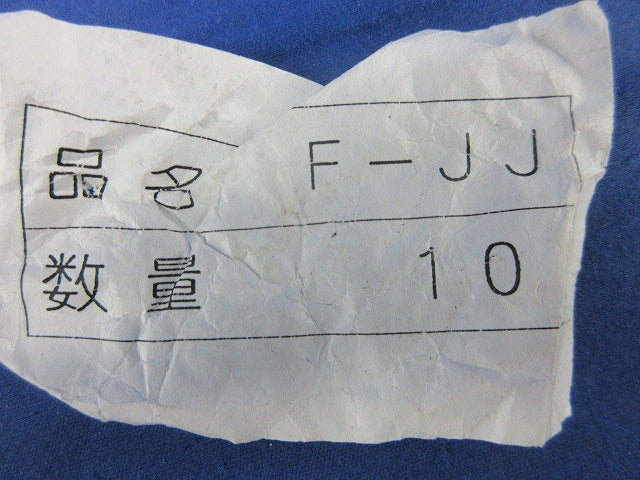 品名 F-JJ
数量 10